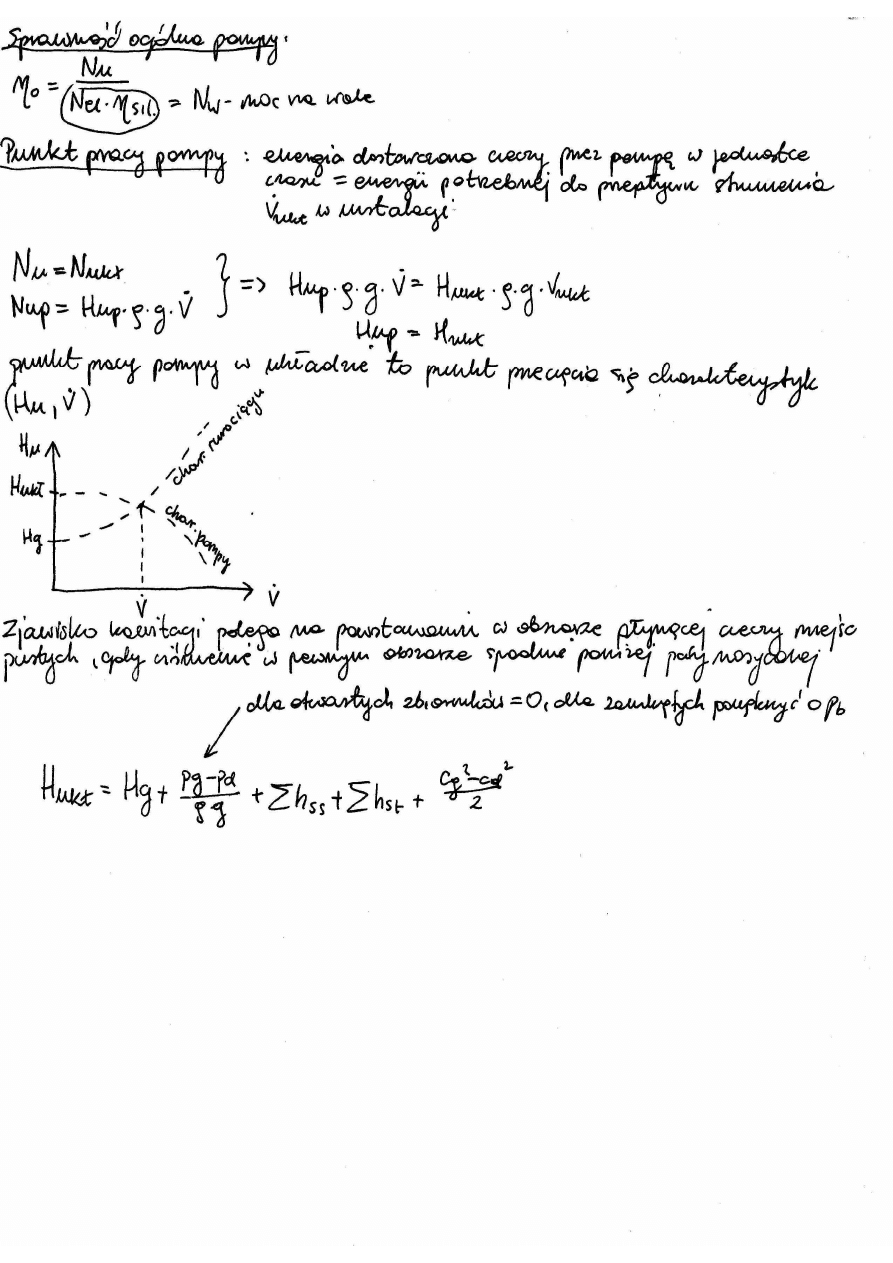 Sprawność ogólna pompy:
ηo = Nu / (Nel. · ηsil.) = Nw - moc na wale
Punkt pracy pompy : energia dostarczona cieczy przez pompę w jednostce
czasu = energii potrzebnej do przepływu strumienia
V̇ukł w instalacji
Nu = Nukł
Nup = Hup · ρ · g · V̇ } => Hup · ρ · g · V̇ = Hukł · ρ · g · Vukł
Hup = Hukł
punkt pracy pompy w układzie to punkt przecięcia się charakterystyk
(Hu, V̇)
Hu
char. rurociągu
Hukł
char. pompy
Hg
V̇
V̇
Zjawisko kawitacji polega na powstawaniu w obszarze płynącej cieczy miejsc
pustych, gdy ciśnienie w pewnym obszarze spadnie poniżej pary nasyconej
dla otwartych zbiorników = 0, dla zamkniętych powiększyć o pb
Hukł = Hg + (pg-pd)/(ρg) + Σhss + Σhst + (cg²-cd²)/2